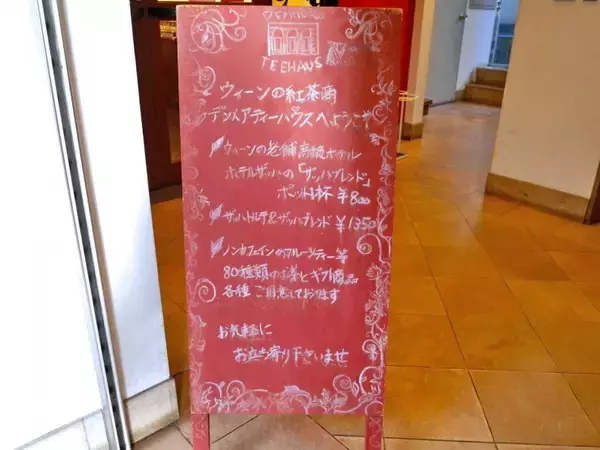 TEEHAUS
ウィーンの紅茶商
デンメアティーハウスへようこそ
ウィーンの老舗高級ホテル
ホテルザッハの「ザッハブレンド」
ポット1杯 ¥800
ザッハトルテ&ザッハブレンド ¥1350
ノンカフェインのフルーツティー等
80種類のお茶とギフト商品
各種ご用意しております
お気軽に
お立ち寄り下さいませ